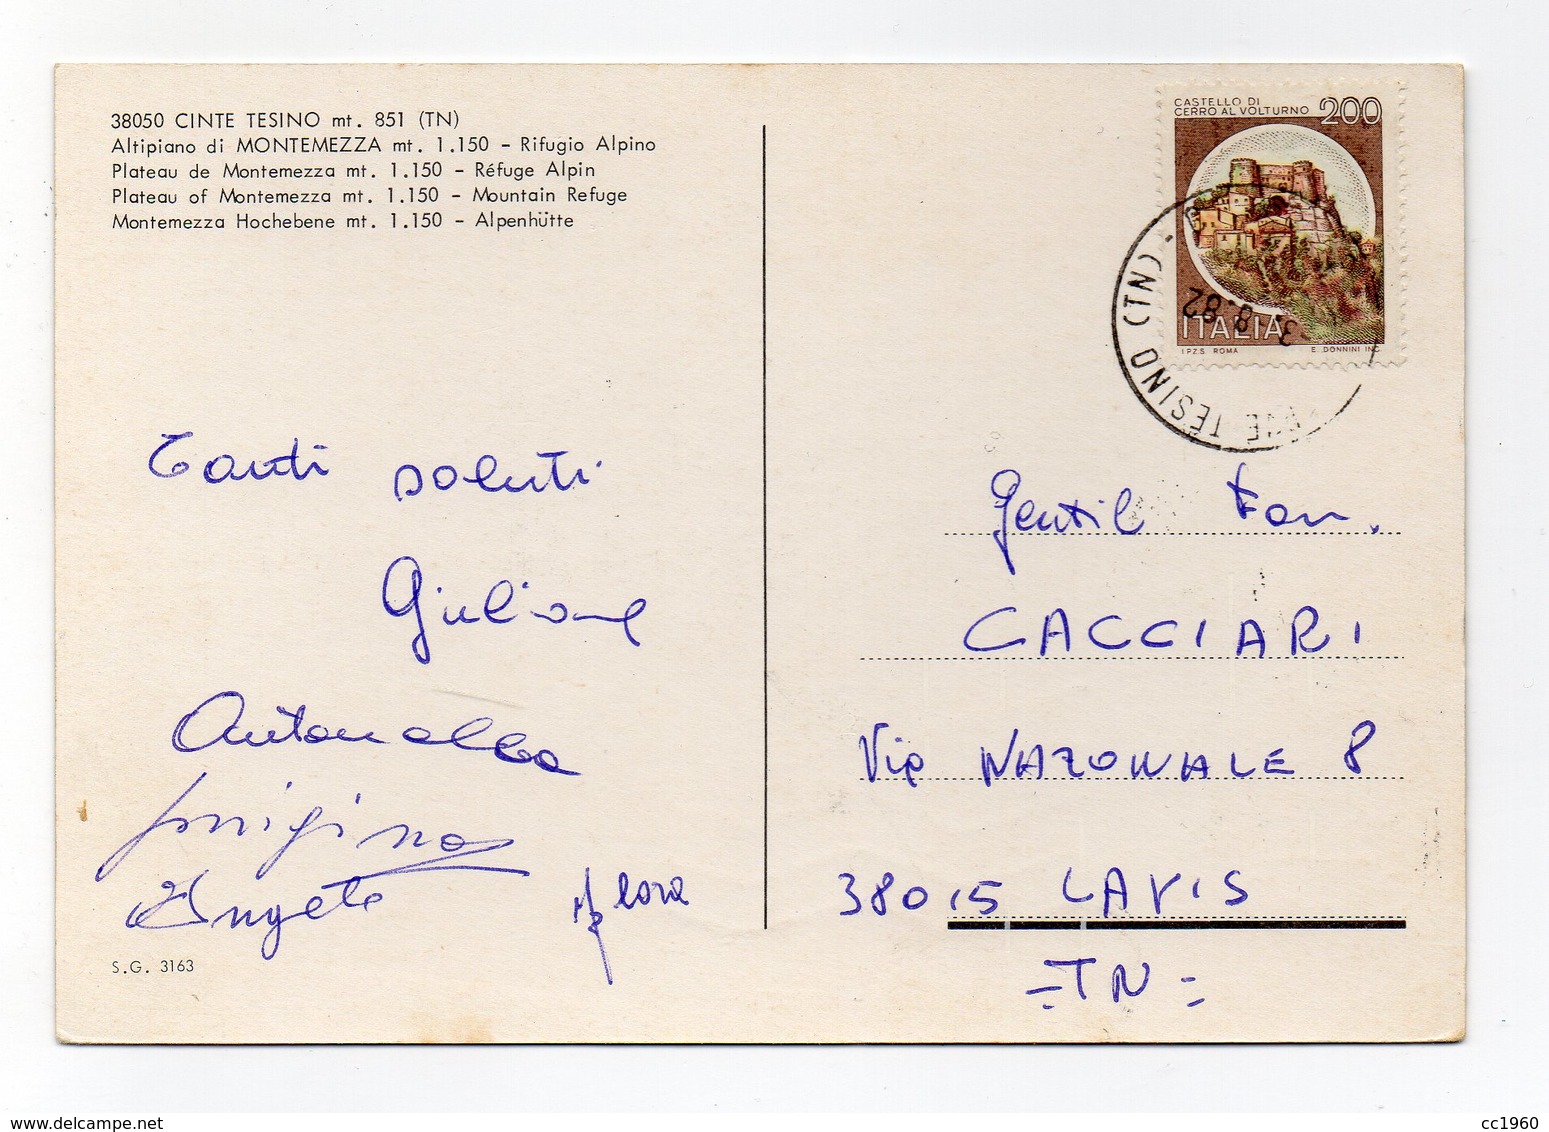 38050 CINTE TESINO mt. 851 (TN)
Altipiano di MONTEMEZZA mt. 1.150 - Rifugio Alpino
Plateau de Montemezza mt. 1.150 - Réfuge Alpin
Plateau of Montemezza mt. 1.150 - Mountain Refuge
Montemezza Hochebene mt. 1.150 - Alpenhütte
Tanti saluti
Giuliana
Antonella
Luigino
Angela
Mara
S.G. 3163
CASTELLO DI
CERRO AL VOLTURNO 200
ITALIA
I.P.Z.S. ROMA E. DONNINI INC.
TESINO (TN)
-3.-8.82
Gentil Fam.
CACCIARI
Via NAZONALE 8
38015 LAVIS
=TN=
delcampe.net
cc1960